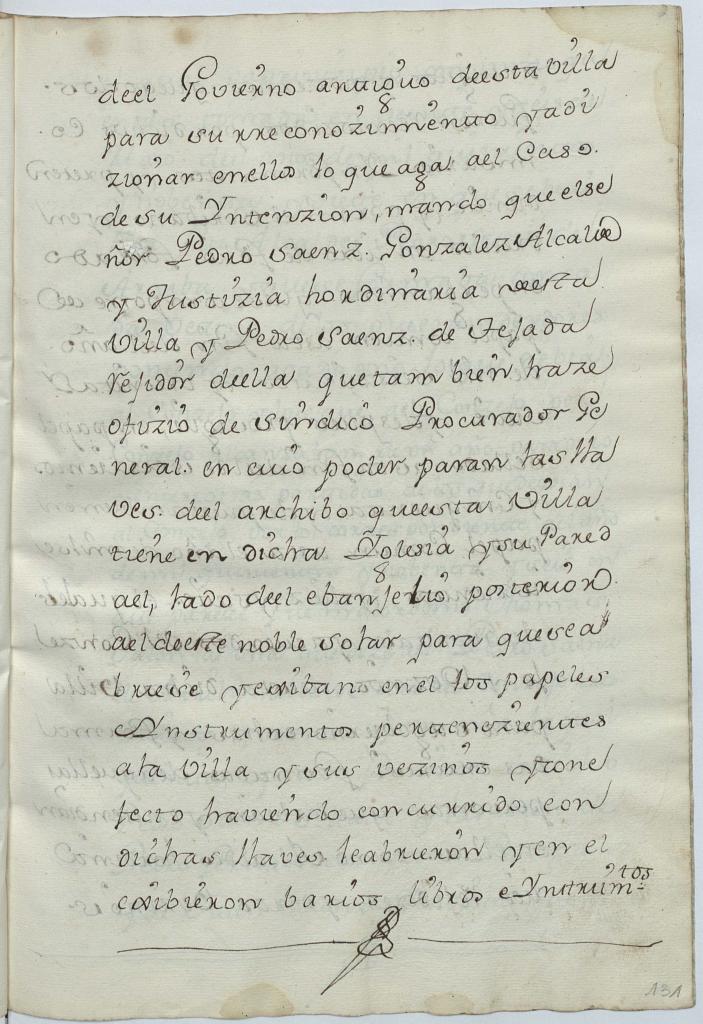 deel Govierno antiguo deesta Villa
para su rreconozimiento y adi
zionar enellos lo que aga ael Caso.
de su Yntenzion, mando que else
ñor Pedro Saenz. Gonzalez Alcalde
y Justizia hordinaria deesta
Villa y Pedro Saenz. de Tejada
rejidor deella que tam bien haze
ofizio de sindico Procurador Ge
neral. en cuio poder paran las lla
ves. deel archibo queesta Villa
tiene en dicha Yglesia y su Pared
ael, lado deel ebanjelio posterior
ael deeste noble solar para quesea
briese y exibano en el los papeles
e Ynstrumentos pertenezientes
ala Villa y sus vezinos y cone
fecto haviendo concurrido con
dichas llaves. leabrieron y en el
exibieron barios libros e Ynstrumtos
131